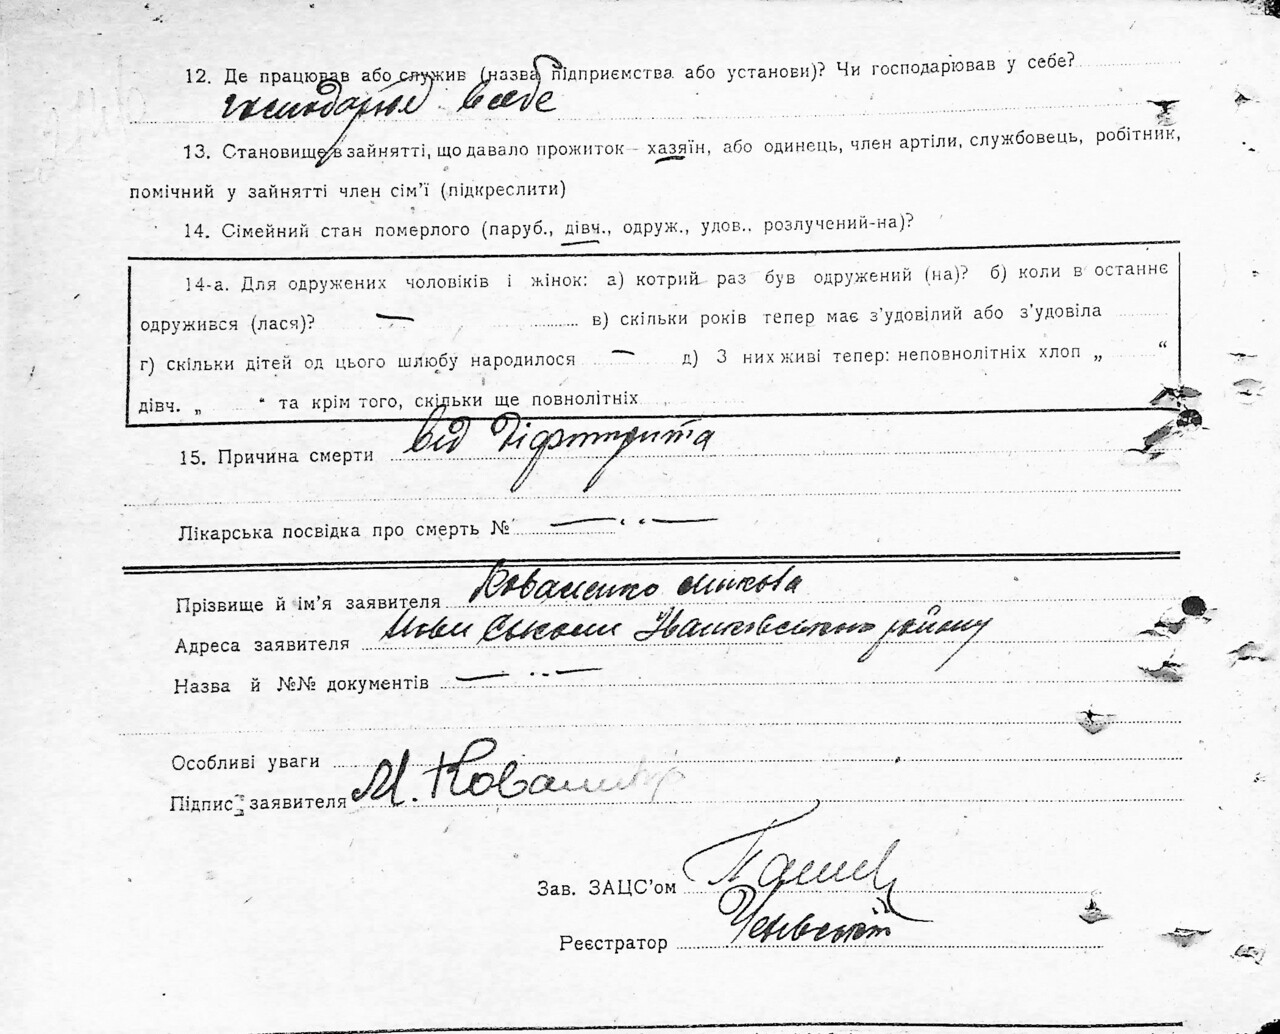 12. Де працював або служив (назва підприємства або установи)? Чи господарював у себе?
господарював в себе
13. Становище в зайнятті, що давало прожиток — хазяїн, або одинець, член артіли, службовець, робітник,
помічний у зайнятті член сім’ї (підкреслити)
14. Сімейний стан померлого (паруб., дівч., одруж., удов., розлучений-на)?
14-а. Для одружених чоловіків і жінок: а) котрий раз був одружений (на)? б) коли в останнє
одружився (лася)? — в) скільки років тепер має з’удовілий або з’удовіла
г) скільки дітей од цього шлюбу народилося — д) З них живі тепер: неповнолітніх хлоп „ “
дівч. „ “ та крім того, скільки ще повнолітніх
15. Причина смерти від Діфтирита
Лікарська посвідка про смерть № — ·· —
Прізвище й ім’я заявителя Коваленко Микола
Адреса заявителя Нові Соколи Іванковського району
Назва й №№ документів — ·· —
Особливі уваги
Підпис заявителя М. Коваленко
Зав. ЗАЦС’ом
Реєстратор